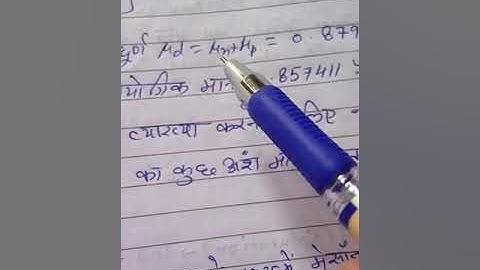 पूर्ण μd = μn+μp = 0.879
योगिक मान .857411
व्याख्या करन लिए
का कुछ अंश म
में मेसॉन